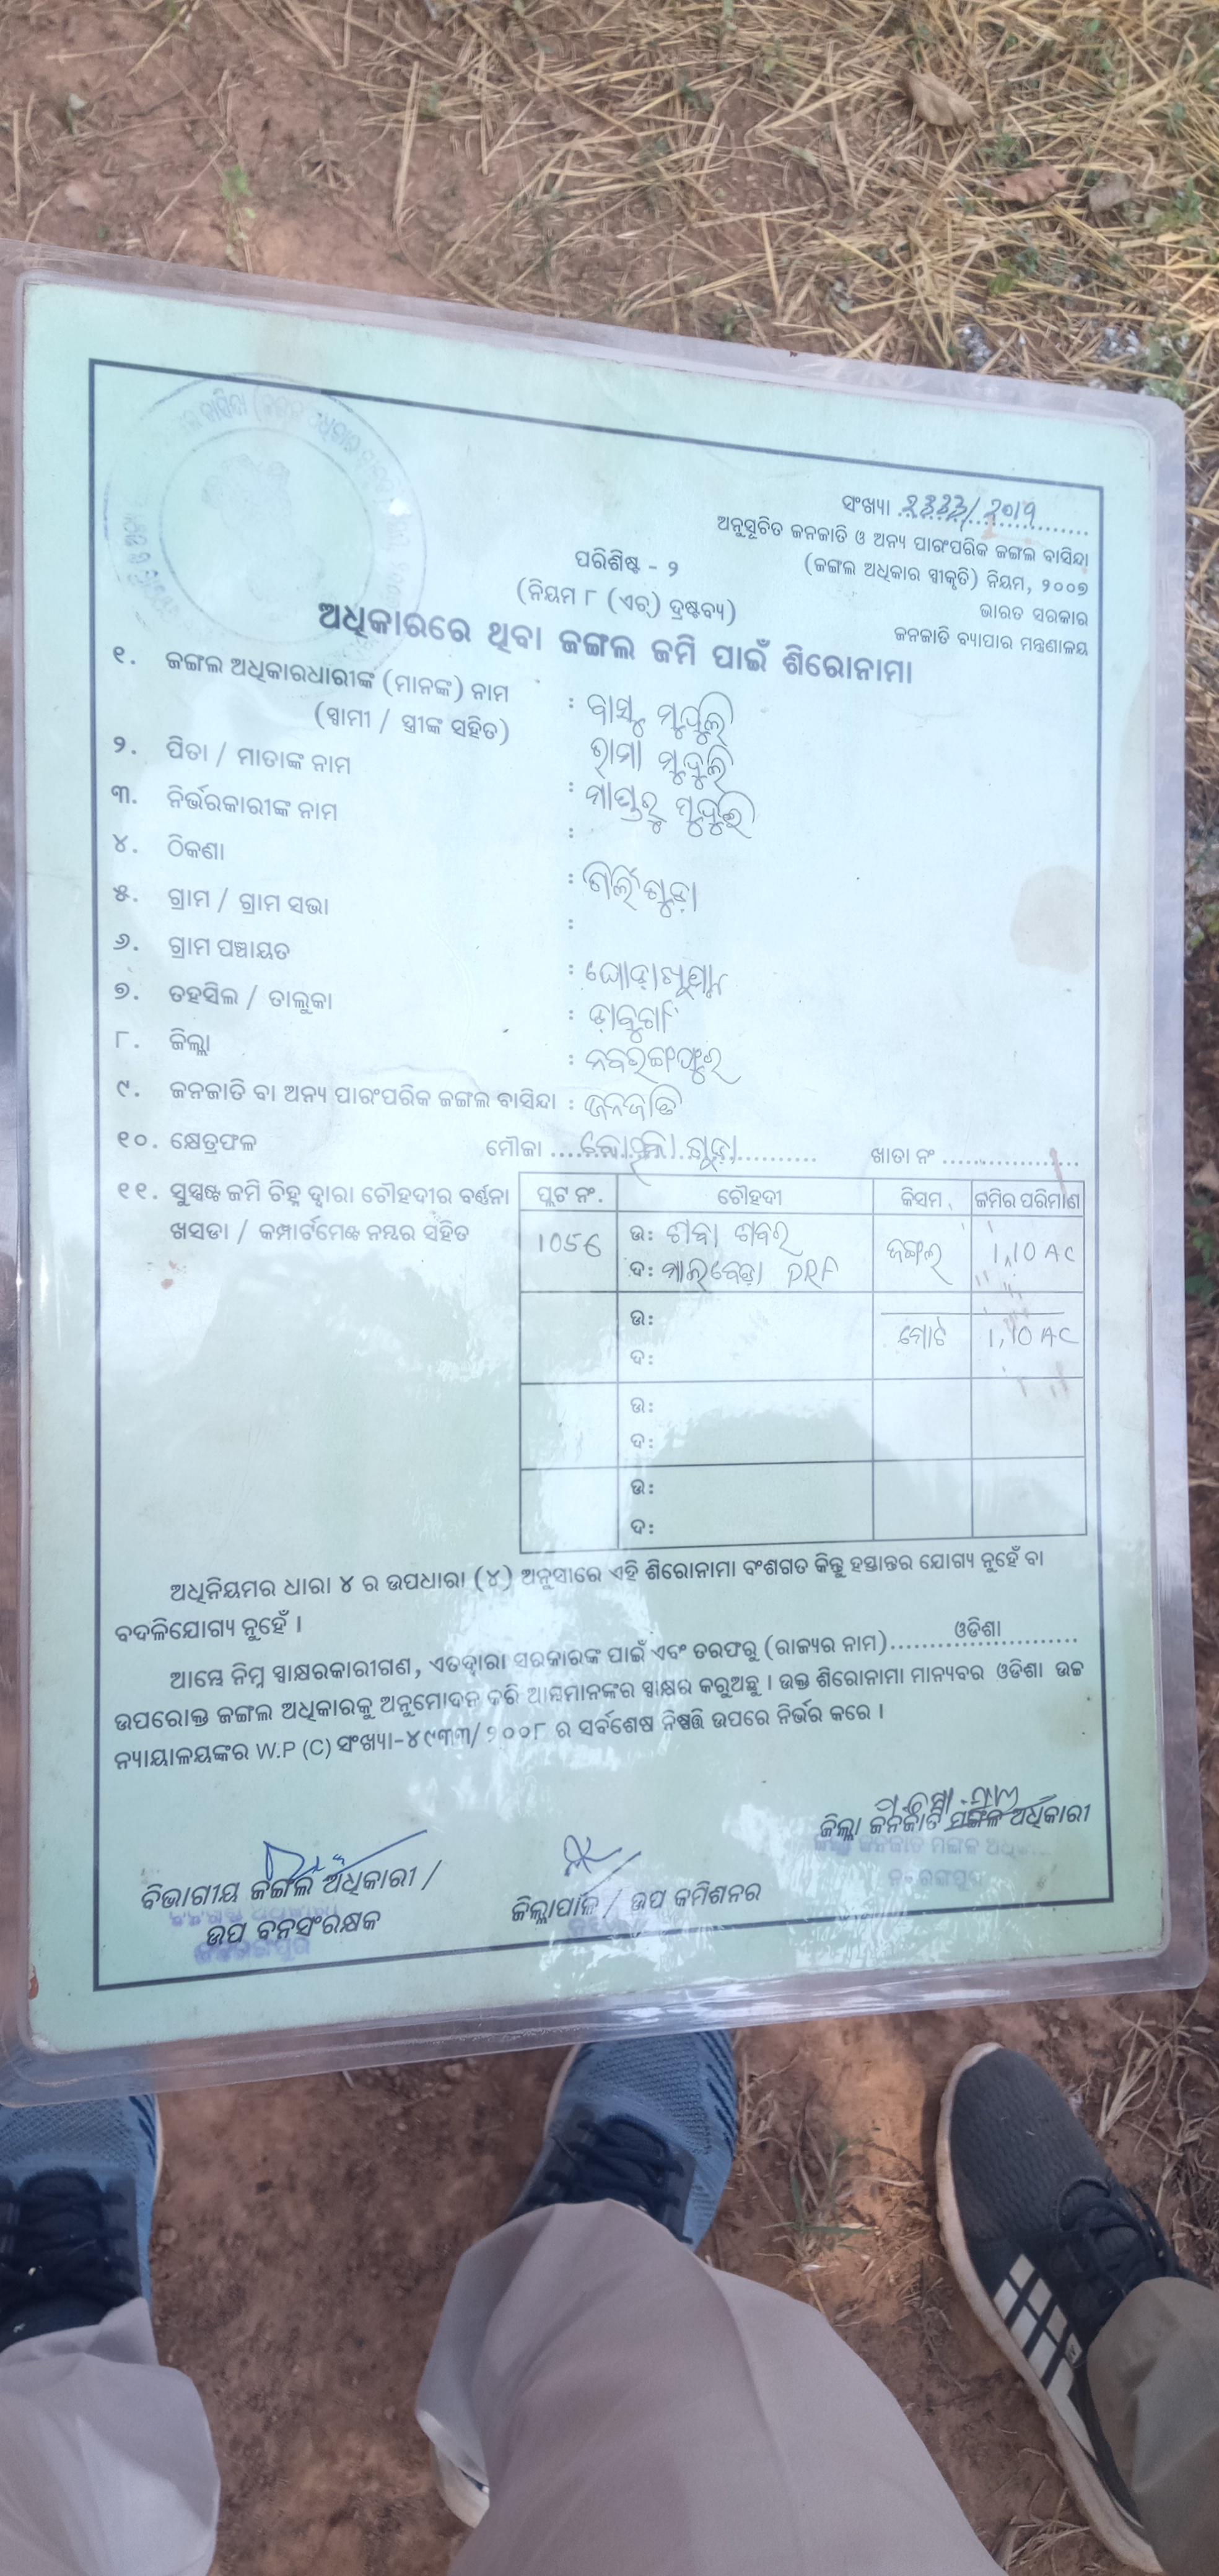 ସଂଖ୍ୟା
ଅନୁସୂଚିତ ଜନଜାତି ଓ ଅନ୍ୟ ପାରଂପରିକ ଜଙ୍ଗଲ ବାସିନ୍ଦା
(ଜଙ୍ଗଲ ଅଧିକାର ସ୍ୱୀକୃତି) ନିୟମ, ୨୦୦୭
ଭାରତ ସରକାର
ଜନଜାତି ବ୍ୟାପାର ମନ୍ତ୍ରଣାଳୟ
ପରିଶିଷ୍ଟ - ୨
(ନିୟମ ୮ (ଏଚ୍) ଦ୍ରଷ୍ଟବ୍ୟ)
ଅଧିକାରରେ ଥିବା ଜଙ୍ଗଲ ଜମି ପାଇଁ ଶିରୋନାମା
୧. ଜଙ୍ଗଲ ଅଧିକାରଧାରୀଙ୍କ (ମାନଙ୍କ) ନାମ : ବାସୁ ମୁଦୁଲି
(ସ୍ୱାମୀ / ସ୍ତ୍ରୀଙ୍କ ସହିତ) ରାମା ମୁଦୁଲି
୨. ପିତା / ମାତାଙ୍କ ନାମ : ମୁଦୁଲି
୩. ନିର୍ଭରକାରୀଙ୍କ ନାମ :
୪. ଠିକଣା :
୫. ଗ୍ରାମ / ଗ୍ରାମ ସଭା :
୬. ଗ୍ରାମ ପଞ୍ଚାୟତ :
୭. ତହସିଲ / ତାଲୁକା : ଡାବୁଗାଁ
୮. ଜିଲ୍ଲା : ନବରଙ୍ଗପୁର
୯. ଜନଜାତି ବା ଅନ୍ୟ ପାରଂପରିକ ଜଙ୍ଗଲ ବାସିନ୍ଦା : ଜନଜାତି
୧୦. କ୍ଷେତ୍ରଫଳ ମୌଜା ଗୁଡ଼ା ଖାତା ନଂ
୧୧. ସୁସ୍ପଷ୍ଟ ଜମି ଚିହ୍ନ ଦ୍ୱାରା ଚୌହଦୀର ବର୍ଣ୍ଣନା
ଖସଡା / କମ୍ପାର୍ଟମେଣ୍ଟ ନମ୍ବର ସହିତ
ପ୍ଲଟ ନଂ. ଚୌହଦୀ କିସମ ଜମିର ପରିମାଣ
1056 ଉ: ଶବର ଜଙ୍ଗଲ 1.10 AC
ଦ: ମାଲବେଡ଼ା PRF
ଉ: ମୋଟ 1.10 AC
ଦ:
ଉ:
ଦ:
ଉ:
ଦ:
ଅଧିନିୟମର ଧାରା ୪ ର ଉପଧାରା (୪) ଅନୁସାରେ ଏହି ଶିରୋନାମା ବଂଶଗତ କିନ୍ତୁ ହସ୍ତାନ୍ତର ଯୋଗ୍ୟ ନୁହେଁ ବା
ବଦଳିଯୋଗ୍ୟ ନୁହେଁ ।
ଆମ୍ଭେ ନିମ୍ନ ସ୍ୱାକ୍ଷରକାରୀଗଣ, ଏତଦ୍ଦ୍ୱାରା ସରକାରଙ୍କ ପାଇଁ ଏବଂ ତରଫରୁ (ରାଜ୍ୟର ନାମ) ଓଡିଶା
ଉପରୋକ୍ତ ଜଙ୍ଗଲ ଅଧିକାରକୁ ଅନୁମୋଦନ କରି ଆମମାନଙ୍କର ସ୍ୱାକ୍ଷର କରୁଅଛୁ । ଉକ୍ତ ଶିରୋନାମା ମାନ୍ୟବର ଓଡିଶା ଉଚ୍ଚ
ନ୍ୟାୟାଳୟଙ୍କର W.P (C) ସଂଖ୍ୟା-୪୯୩୩/୨୦୦୮ ର ସର୍ବଶେଷ ନିଷ୍ପତ୍ତି ଉପରେ ନିର୍ଭର କରେ ।
ଜିଲ୍ଲା ଜନଜାତି ମଙ୍ଗଳ ଅଧିକାରୀ
ବିଭାଗୀୟ ଜଙ୍ଗଲ ଅଧିକାରୀ /
ଉପ ବନସଂରକ୍ଷକ
ଜିଲ୍ଲାପାଳ / ଉପ କମିଶନର